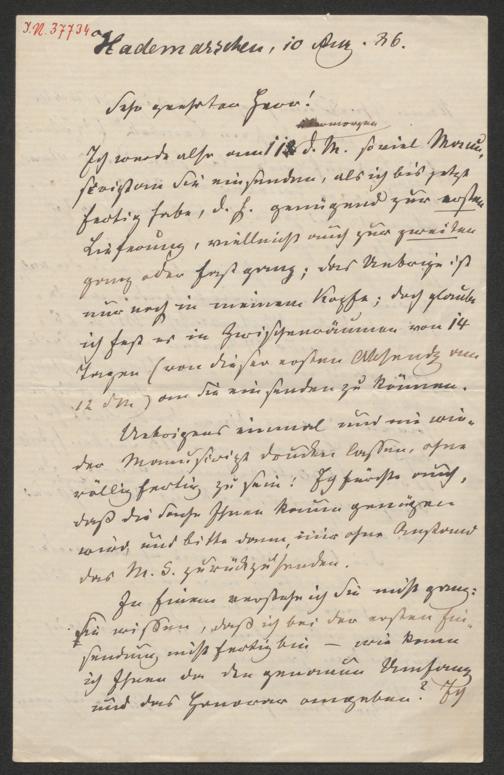 I.N. 37734
Hademarschen, 10 Aug. 86.
Sehr geehrter Herr!
übermorgen
Ich werde also am 12 d. M. soviel Manu-
skript an Sie einsenden, als ich bis jetzt
fertig habe, d. h. genügend zur ersten
Lieferung, vielleicht auch zur zweiten
ganz oder fast ganz; das Uebrige ist
nur noch in meinem Kopfe; doch glaube
ich fest es in Zwischenräumen von 14
Tagen (von dieser ersten Absendg am
12 d M.) an Sie einsenden zu können.
Uebrigens einmal und nie wie-
der Manuskript drucken lassen, ohne
völlig fertig zu sein! Ich fürchte auch,
daß die Sache Ihnen kaum genügen
wird, und bitte dann, mir ohne Anstand
das M. S. zurückzusenden.
In Einem verstehe ich Sie nicht ganz:
Sie wissen, daß ich bei der ersten Ein-
sendung nicht fertig bin — wie kann
ich Ihnen da den genauen Umfang
und das Honorar angeben? Ich